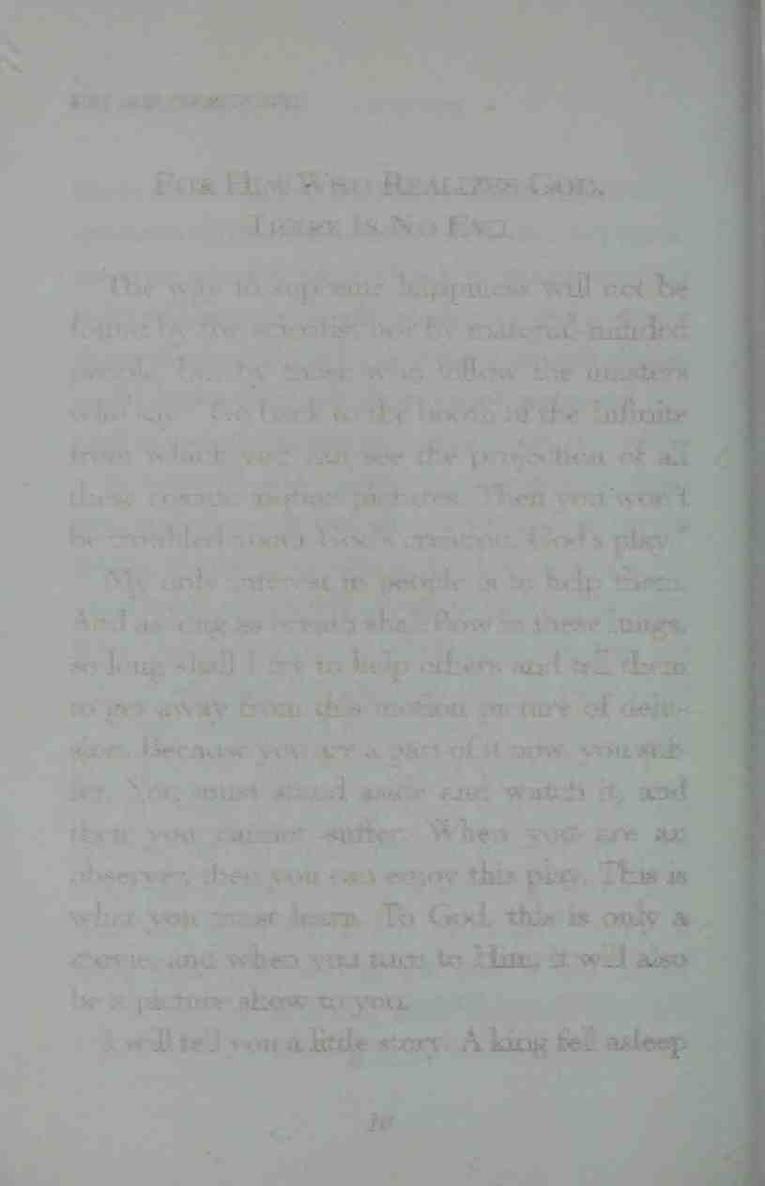 FOR HIM WHO REALIZES GOD,
THERE IS NO EVIL
The way to supreme happiness will not be
found by the scientist nor by material-minded
people, but by those who follow the masters
who say, "Go back to the booth of the Infinite
from which you can see the projection of all
these cosmic motion pictures. Then you won't
be troubled about God's creation, God's play."
My only interest in people is to help them.
And as long as breath shall flow in these lungs,
so long shall I try to help others and tell them
to get away from this motion picture of delu-
sion. Because you are a part of it now, you suf-
fer. You must stand aside and watch it, and
then you cannot suffer. When you are an
observer, then you can enjoy this play. This is
what you must learn. To God, this is only a
movie, and when you turn to Him, it will also
be a picture show to you.
I will tell you a little story. A king fell asleep